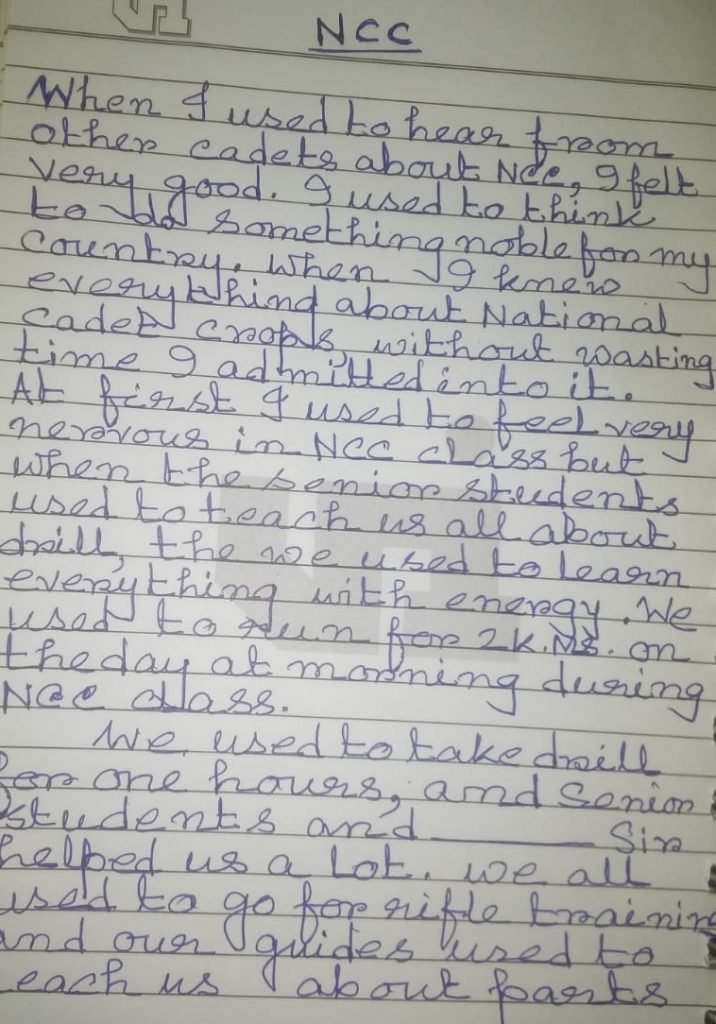 NCC
When I used to hear from
other cadets about Ncc, I felt
very good. I used to think
to do something noble for my
country. When I knew
everything about National
cadet crops without wasting
time I admitted into it.
At first I used to feel very
nervous in NCC class but
when the senior students
used to teach us all about
drill, the we used to learn
everything with energy. We
used to run for 2K.Ms. on
the day at morning during
NCC class.
We used to take drill
for one hours, and Senior
students and ________ Sir
helped us a lot. we all
used to go for rifle trainin
and our guides used to
each us about parts